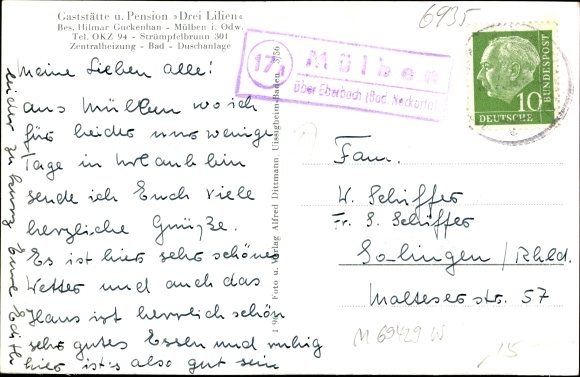 Gaststätte u. Pension »Drei Lilien«
Bes. Hilmar Guckenhan - Mülben i. Odw.
Tel. OKZ 94 - Strümpfelbrunn 301
Zentralheizung - Bad - Duschanlage
6935
17a
Mülben
über Eberbach (Bad. Neckartal)
DEUTSCHE
BUNDESPOST
10
Meine Lieben alle!
Aus Mülben wo ich
für leider nur wenige
Tage in Urlaub bin
sende ich Euch viele
herzliche Grüße.
Es ist hier sehr schönes
Wetter und auch das
Haus ist herrlich schön
sehr gutes Essen und ruhig
hier ist's also gut sein
leider zu kurz Eure Edith
Foto u. Verlag Alfred Dittmann, Uissigheim-Baden
Fam.
W. Schiffer
Fr. S. Schiffer
Solingen / Rhld.
Malteserstr. 57
M 69429 W
15